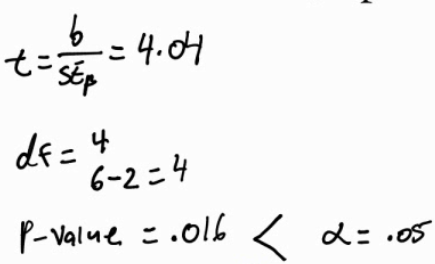 t = b/SEβ = 4.04
df = 4
6-2=4
P-value = .016 < α = .05